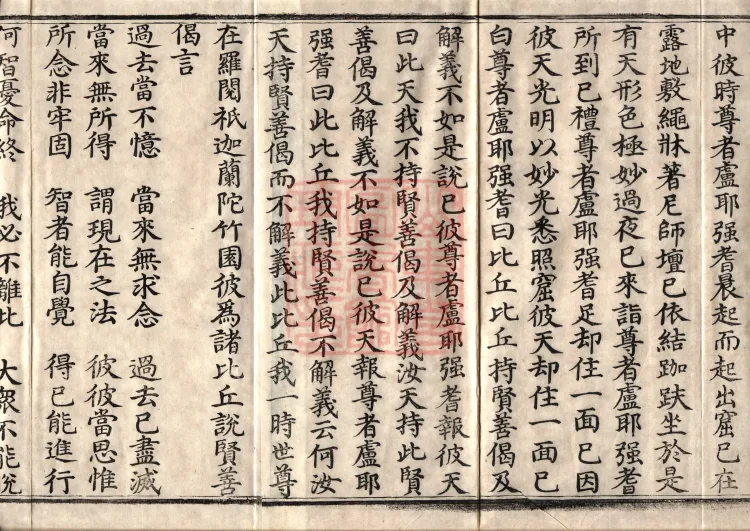 中彼時尊者盧耶强耆晨起而起出窟已在
露地敷繩牀著尼師壇已依結跏趺坐於是
有天形色極妙過夜已來詣尊者盧耶强耆
所到已禮尊者盧耶强耆足却住一面已因
彼天光明以妙光悉照窟彼天却住一面已
白尊者盧耶强耆曰比丘比丘持賢善偈及
解義不如是說已彼尊者盧耶强耆報彼天
曰此天我不持賢善偈及解義汝天持此賢
善偈及解義不如是說已彼天報尊者盧耶
强耆曰此比丘我持賢善偈不解義云何汝
天持賢善偈而不解義此比丘我一時世尊
在羅閱祇迦蘭陀竹園彼爲諸比丘說賢善
偈言
過去當不憶　當來無求念　過去已盡滅
當來無所得　謂現在之法　彼彼當思惟
所念非牢固　智者能自覺　得已能進行
何智憂命終　我必不離此　大眾不能脫